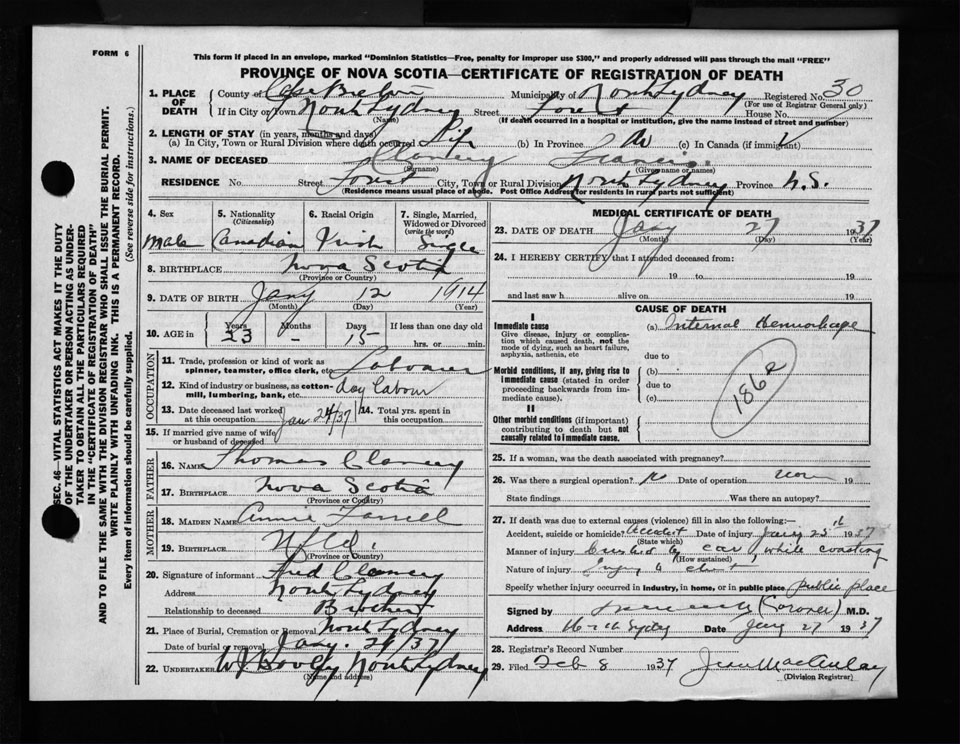 FORM 6
This form if placed in an envelope, marked "Dominion Statistics—Free, penalty for improper use $300," and properly addressed will pass through the mail "FREE"
PROVINCE OF NOVA SCOTIA—CERTIFICATE OF REGISTRATION OF DEATH
1. PLACE OF DEATH County of Cape Breton Municipality of North Sydney Registered No. 30
(For use of Registrar General only)
If in City or Town North Sydney Street House No.
(Name) (If death occurred in a hospital or institution, give the name instead of street and number)
2. LENGTH OF STAY (in years, months and days)
(a) In City, Town or Rural Division where death occurred Life (b) In Province (c) In Canada (if immigrant)
3. NAME OF DECEASED Clancey Francis.
(Surname) (Given name or names)
RESIDENCE No. Street City, Town or Rural Division North Sydney Province N.S.
(Residence means usual place of abode. Post Office Address for residents in rural parts not sufficient)
SEC. 46—VITAL STATISTICS ACT MAKES IT THE DUTY
OF THE UNDERTAKER OR PERSON ACTING AS UNDER-
TAKER TO OBTAIN ALL THE PARTICULARS REQUIRED
IN THE "CERTIFICATE OF REGISTRATION OF DEATH"
AND TO FILE THE SAME WITH THE DIVISION REGISTRAR WHO SHALL ISSUE THE BURIAL PERMIT.
WRITE PLAINLY WITH UNFADING INK. THIS IS A PERMANENT RECORD.
Every item of information should be carefully supplied. (See reverse side for instructions.)
4. Sex 5. Nationality (Citizenship) 6. Racial Origin 7. Single, Married, Widowed or Divorced (write the word)
Male Canadian Irish Single
8. BIRTHPLACE Nova Scotia
(Province or Country)
9. DATE OF BIRTH Jany 12 1914
(Month) (Day) (Year)
10. AGE in Years Months Days If less than one day old
23 - 15 hrs. or min.
OCCUPATION
11. Trade, profession or kind of work as spinner, teamster, office clerk, etc. Labourer
12. Kind of industry or business, as cotton-mill, lumbering, bank, etc. day labour
13. Date deceased last worked at this occupation Jan 24/37 14. Total yrs. spent in this occupation
15. If married give name of wife or husband of deceased
FATHER
16. NAME Thomas Clancey
17. BIRTHPLACE Nova Scotia
(Province or Country)
MOTHER
18. MAIDEN NAME Annie Farrell
19. BIRTHPLACE Nfld.
(Province or Country)
20. Signature of informant Fred Clancey
Address North Sydney
Relationship to deceased Brother
21. Place of Burial, Cremation or Removal North Sydney
Date of burial or removal Jany. 29/37
22. UNDERTAKER North Sydney
(Name and address)
MEDICAL CERTIFICATE OF DEATH
23. DATE OF DEATH Jany 27 1937
(Month) (Day) (Year)
24. I HEREBY CERTIFY that I attended deceased from:
19 to 19
and last saw h alive on 19
CAUSE OF DEATH
I
Immediate cause (a) Internal Hemorhage
Give disease, injury or complication which caused death, not the mode of dying, such as heart failure, asphyxia, asthenia, etc
due to
Morbid conditions, if any, giving rise to immediate cause (stated in order proceeding backwards from immediate cause). (b)
due to
(c)
1862
II
Other morbid conditions (if important) contributing to death but not causally related to immediate cause.
25. If a woman, was the death associated with pregnancy?
26. Was there a surgical operation? Date of operation 19
State findings Was there an autopsy?
27. If death was due to external causes (violence) fill in also the following:
Accident, suicide or homicide? Accident Date of injury Jany 25th 1937
(State which)
Manner of injury Crushed by car while coasting
(How sustained)
Nature of injury Injury to chest
Specify whether injury occurred in industry, in home, or in public place public place
Signed by (Coroner) M.D.
Address North Sydney Date Jany 27 1937
28. Registrar's Record Number
29. Filed Feb 8 1937
(Division Registrar)